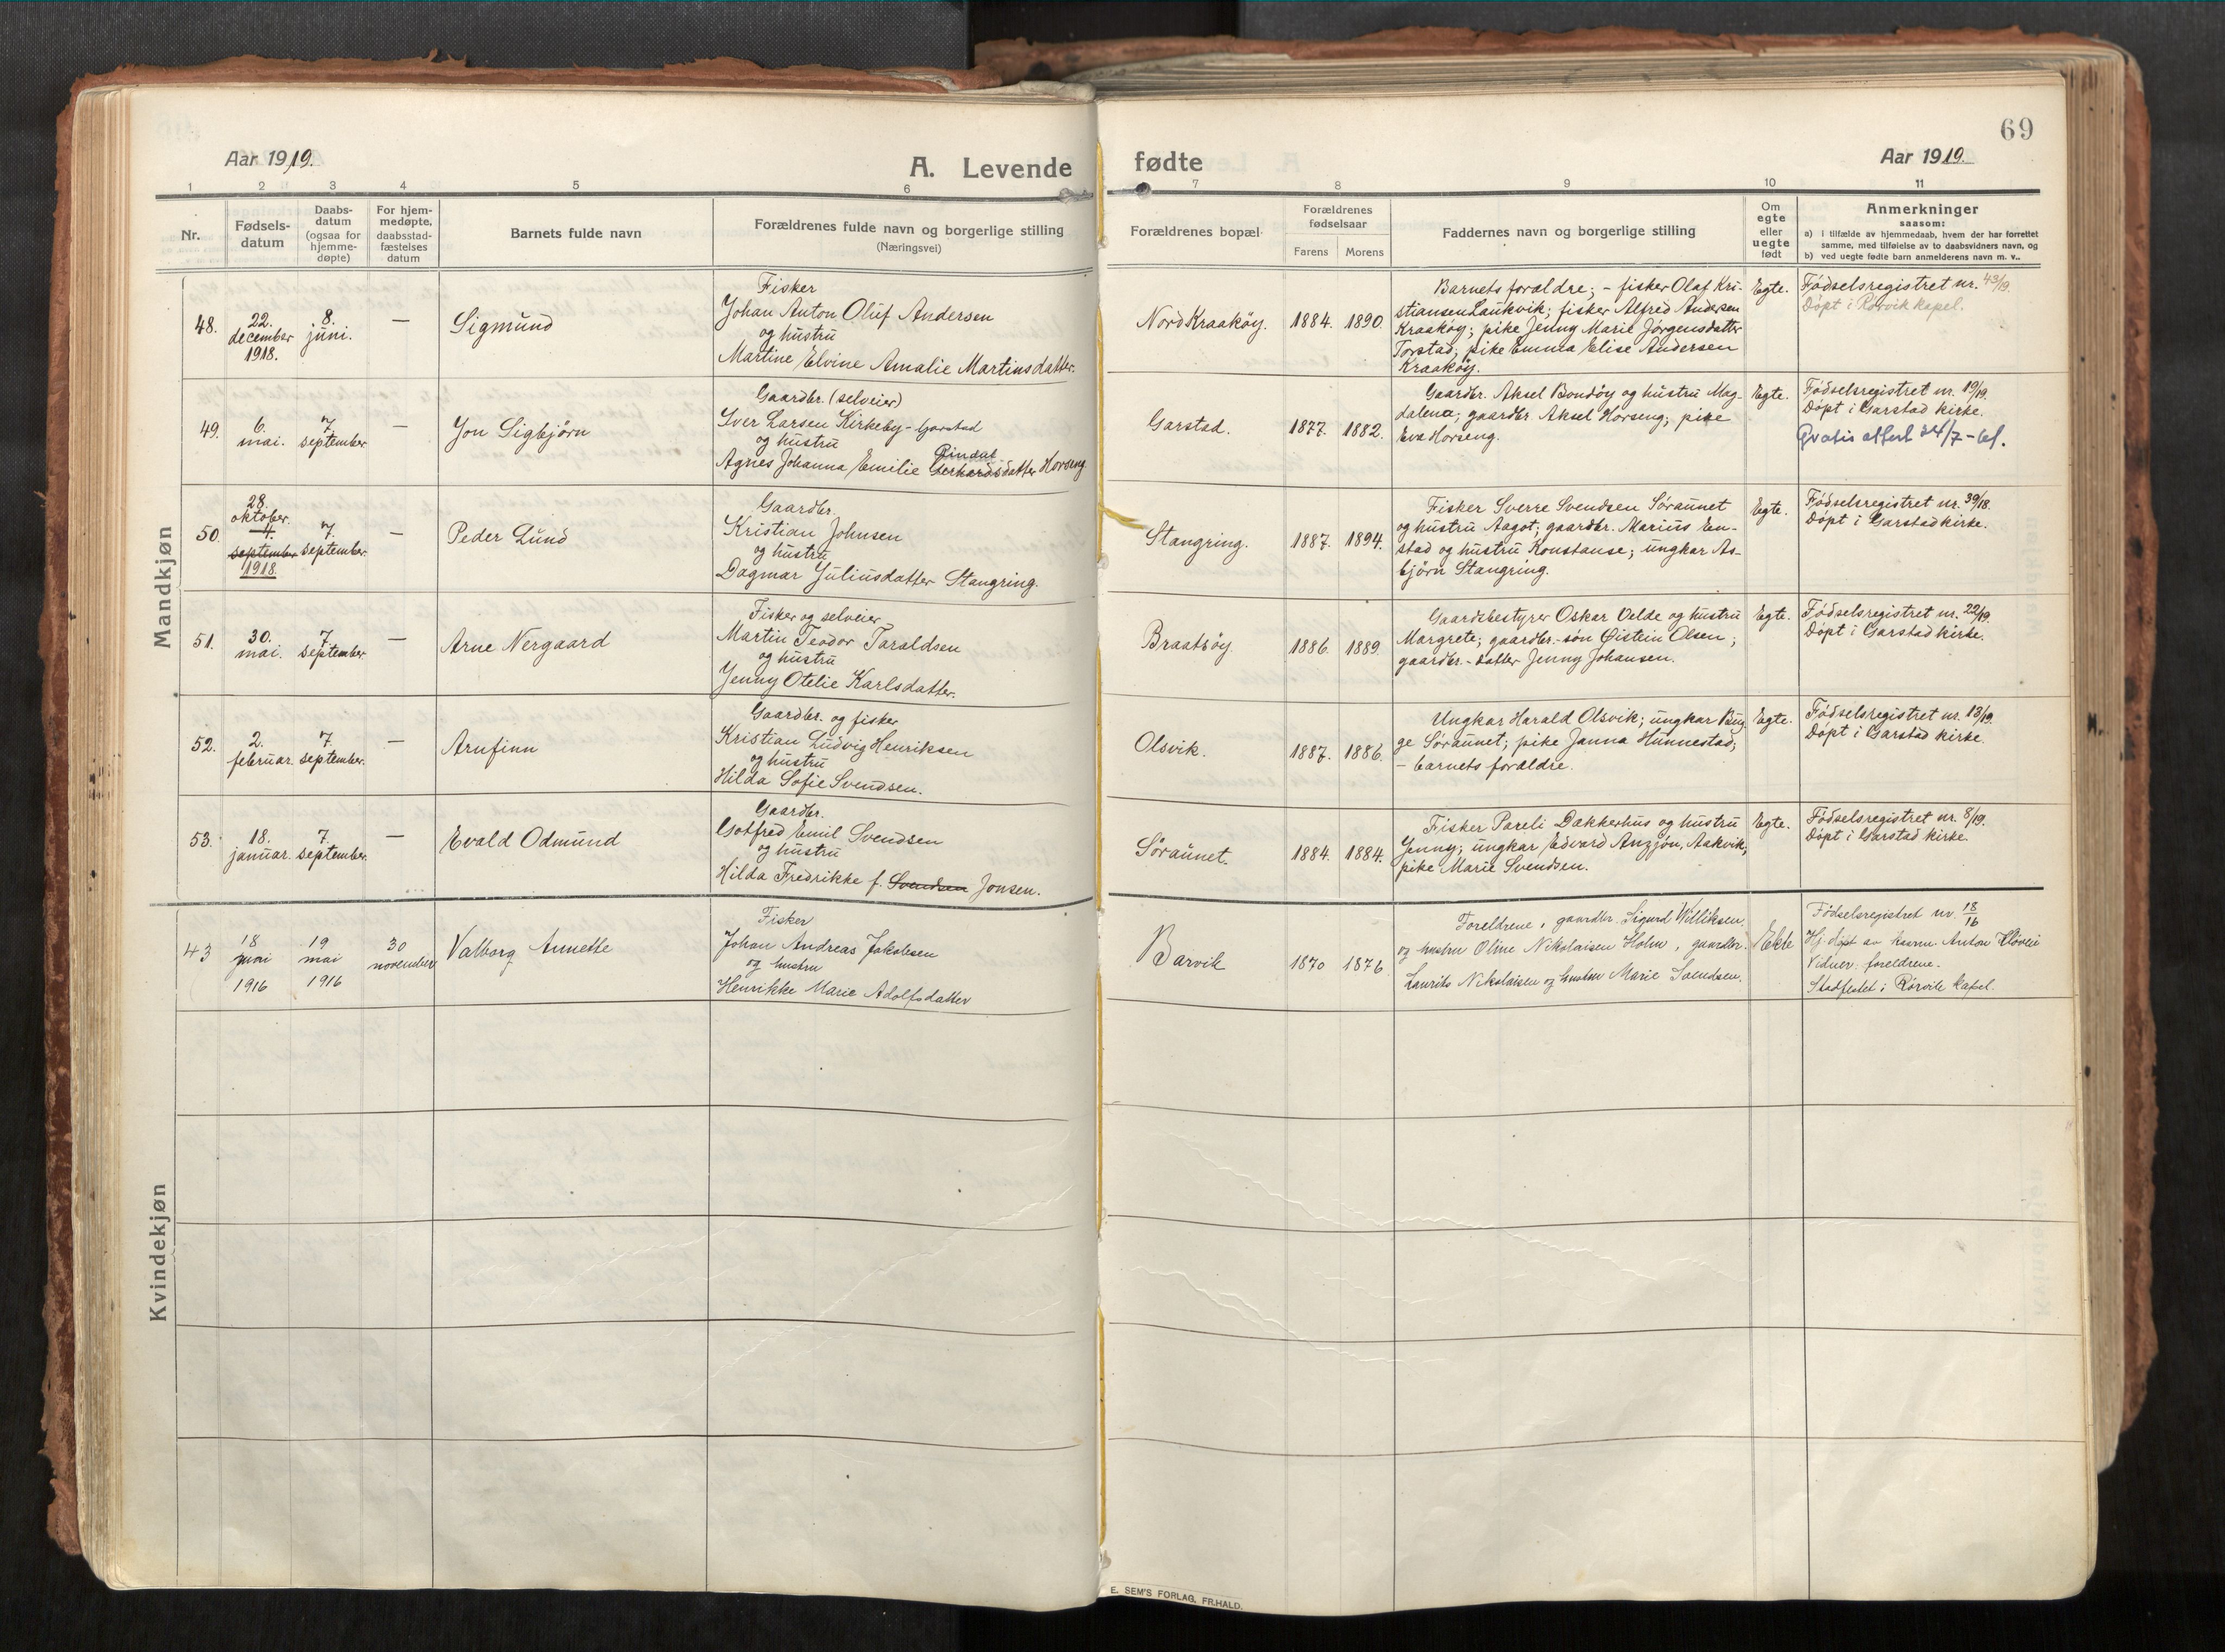 69
Aar 1919.
A. Levende
fødte
Aar 1919.
1 2 3 4 5 6 7 8 9 10 11
Nr.
Fødsels-
datum
Daabs-
datum
(ogsaa for
hjemme-
døpte)
For hjem-
medøpte,
daabsstad-
fæstelses
datum
Barnets fulde navn
Forældrenes fulde navn og borgerlige stilling
(Næringsvei)
Forældrenes bopæl
Forældrenes
fødselsaar
Farens Morens
Faddernes navn og borgerlige stilling
Om
egte
eller
uegte
født
Anmerkninger
saasom:
a) i tilfælde av hjemmedaab, hvem der har forrettet
samme, med tilføielse av to daabsvidners navn, og
b) ved uegte fødte barn anmelderens navn m. v..
Mandkjøn
48.
22.
december
1918.
8.
juni.
—
Sigmund
Fisker
Johan Anton Oluf Andersen
og hustru
Martine Elvine Amalie Martinsdatter.
Nord Kraakøy.
1884. 1890.
Barnets forældre; - fisker Olaf Kri-
stiansen Laukvik; fisker Alfred Andersen
Kraakøy; pike Jenny Marie Jørgensdatter
Torstad; pike Emma Elise Andersen
Kraakøy.
Egte.
Fødselsregistret nr. 43/19.
Døpt i Rørvik kapel.
49.
6.
mai.
7.
september
—
Jon Sigbjørn
Gaardbr. (selveier)
Iver Larsen Kirkeby - Garstad
og hustru
Rindal
Agnes Johanna Emilie Gerhardsdatter Horseng.
Garstad.
1877. 1882.
Gaardbr. Aksel Bondøy og hustru Mag-
dalena; gaardbr. Aksel Horseng; pike
Eva Horseng.
Egte.
Fødselsregistret nr. 19/19.
Døpt i Garstad kirke.
Gratis attest 24/7-61.
50.
28.
oktober.
4.
september
1918.
7.
september.
—
Peder Lund
Gaardbr.
Kristian Johnsen
og hustru
Dagmar Juliusdatter Stangring.
Stangring.
1887. 1894.
Fisker Sverre Svendsen Søraunet
og hustru Aagot; gaardbr. Marius En-
stad og hustru Konstanse; ungkar As-
bjørn Stangring.
Egte.
Fødselsregistret nr. 39/18.
Døpt i Garstad kirke.
51.
30.
mai.
7.
september.
—
Arne Nergaard
Fisker og selveier
Martin Teodor Taraldsen
og hustru
Jenny Otelie Karlsdatter.
Braatøy
1886. 1889.
Gaardsbestyrer Oskar Velde og hustru
Margrete; gaardbr.-søn Øistein Olsen;
gaardbr.-datter Jenny Johansen.
Egte.
Fødselsregistret nr. 22/19.
Døpt i Garstad kirke.
52.
2.
februar.
7.
september.
—
Arnfinn
Gaardbr. og fisker
Kristian Ludvig Henriksen
og hustru
Hilda Sofie Svendsen.
Olsvik.
1887. 1886.
Ungkar Harald Olsvik; ungkar Byg
ge Søraunet; pike Janna Hunnestad;
- barnets forældre.
Egte.
Fødselsregistret nr. 13/19.
Døpt i Garstad kirke.
53.
18.
januar.
7.
september.
—
Evald Odmund
Gaardbr.
Gotfred Emil Svendsen
og hustru
Hilda Fredrikke f. Svendsen Jonsen.
Søraunet.
1884. 1884.
Fisker Pareli Dækkerhus og hustru
Jenny; ungkar Edvard Anzjøn, Aakvik;
pike Marie Svendsen.
Egte.
Fødselsregistret nr. 8/19.
Døpt i Garstad kirke.
Kvindekjøn
43
18
mai
1916
19
mai
1916
30
november
Valborg Annette
Fisker
Johan Andreas Jakobsen
og hustru
Henrikke Marie Adolfsdatter
Barvik
1870 1876
Foreldrene, gaardbr. Sigurd Williksen
og hustru Oline Nikolaisen Holm, gaardbr.
Laurits Nikolaisen og hustru Marie Svendsen.
Ekte
Fødselsregistret nr. 18/16
Hj. døpt av kserm. Anton Kløvei
Vidner: foreldrene.
Stadfestet i Rørvik kapel.
E. SEM'S FORLAG, FR.HALD.